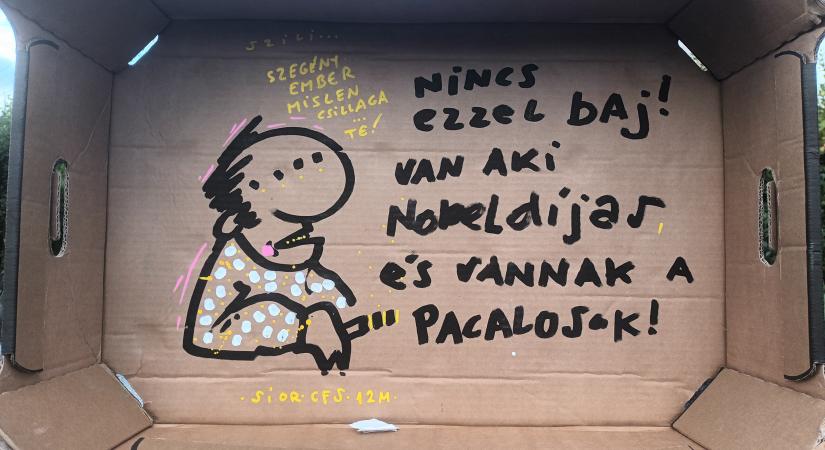 szili...
SZEGÉNY
EMBER
MISLEN
CSILLAGA
...
TE!
NINCS
ezzel bAj!
VAN AKi
Nobeldíjas,
és VANNAK A
PACALOSoK!
·SiOR·CFS·12M·